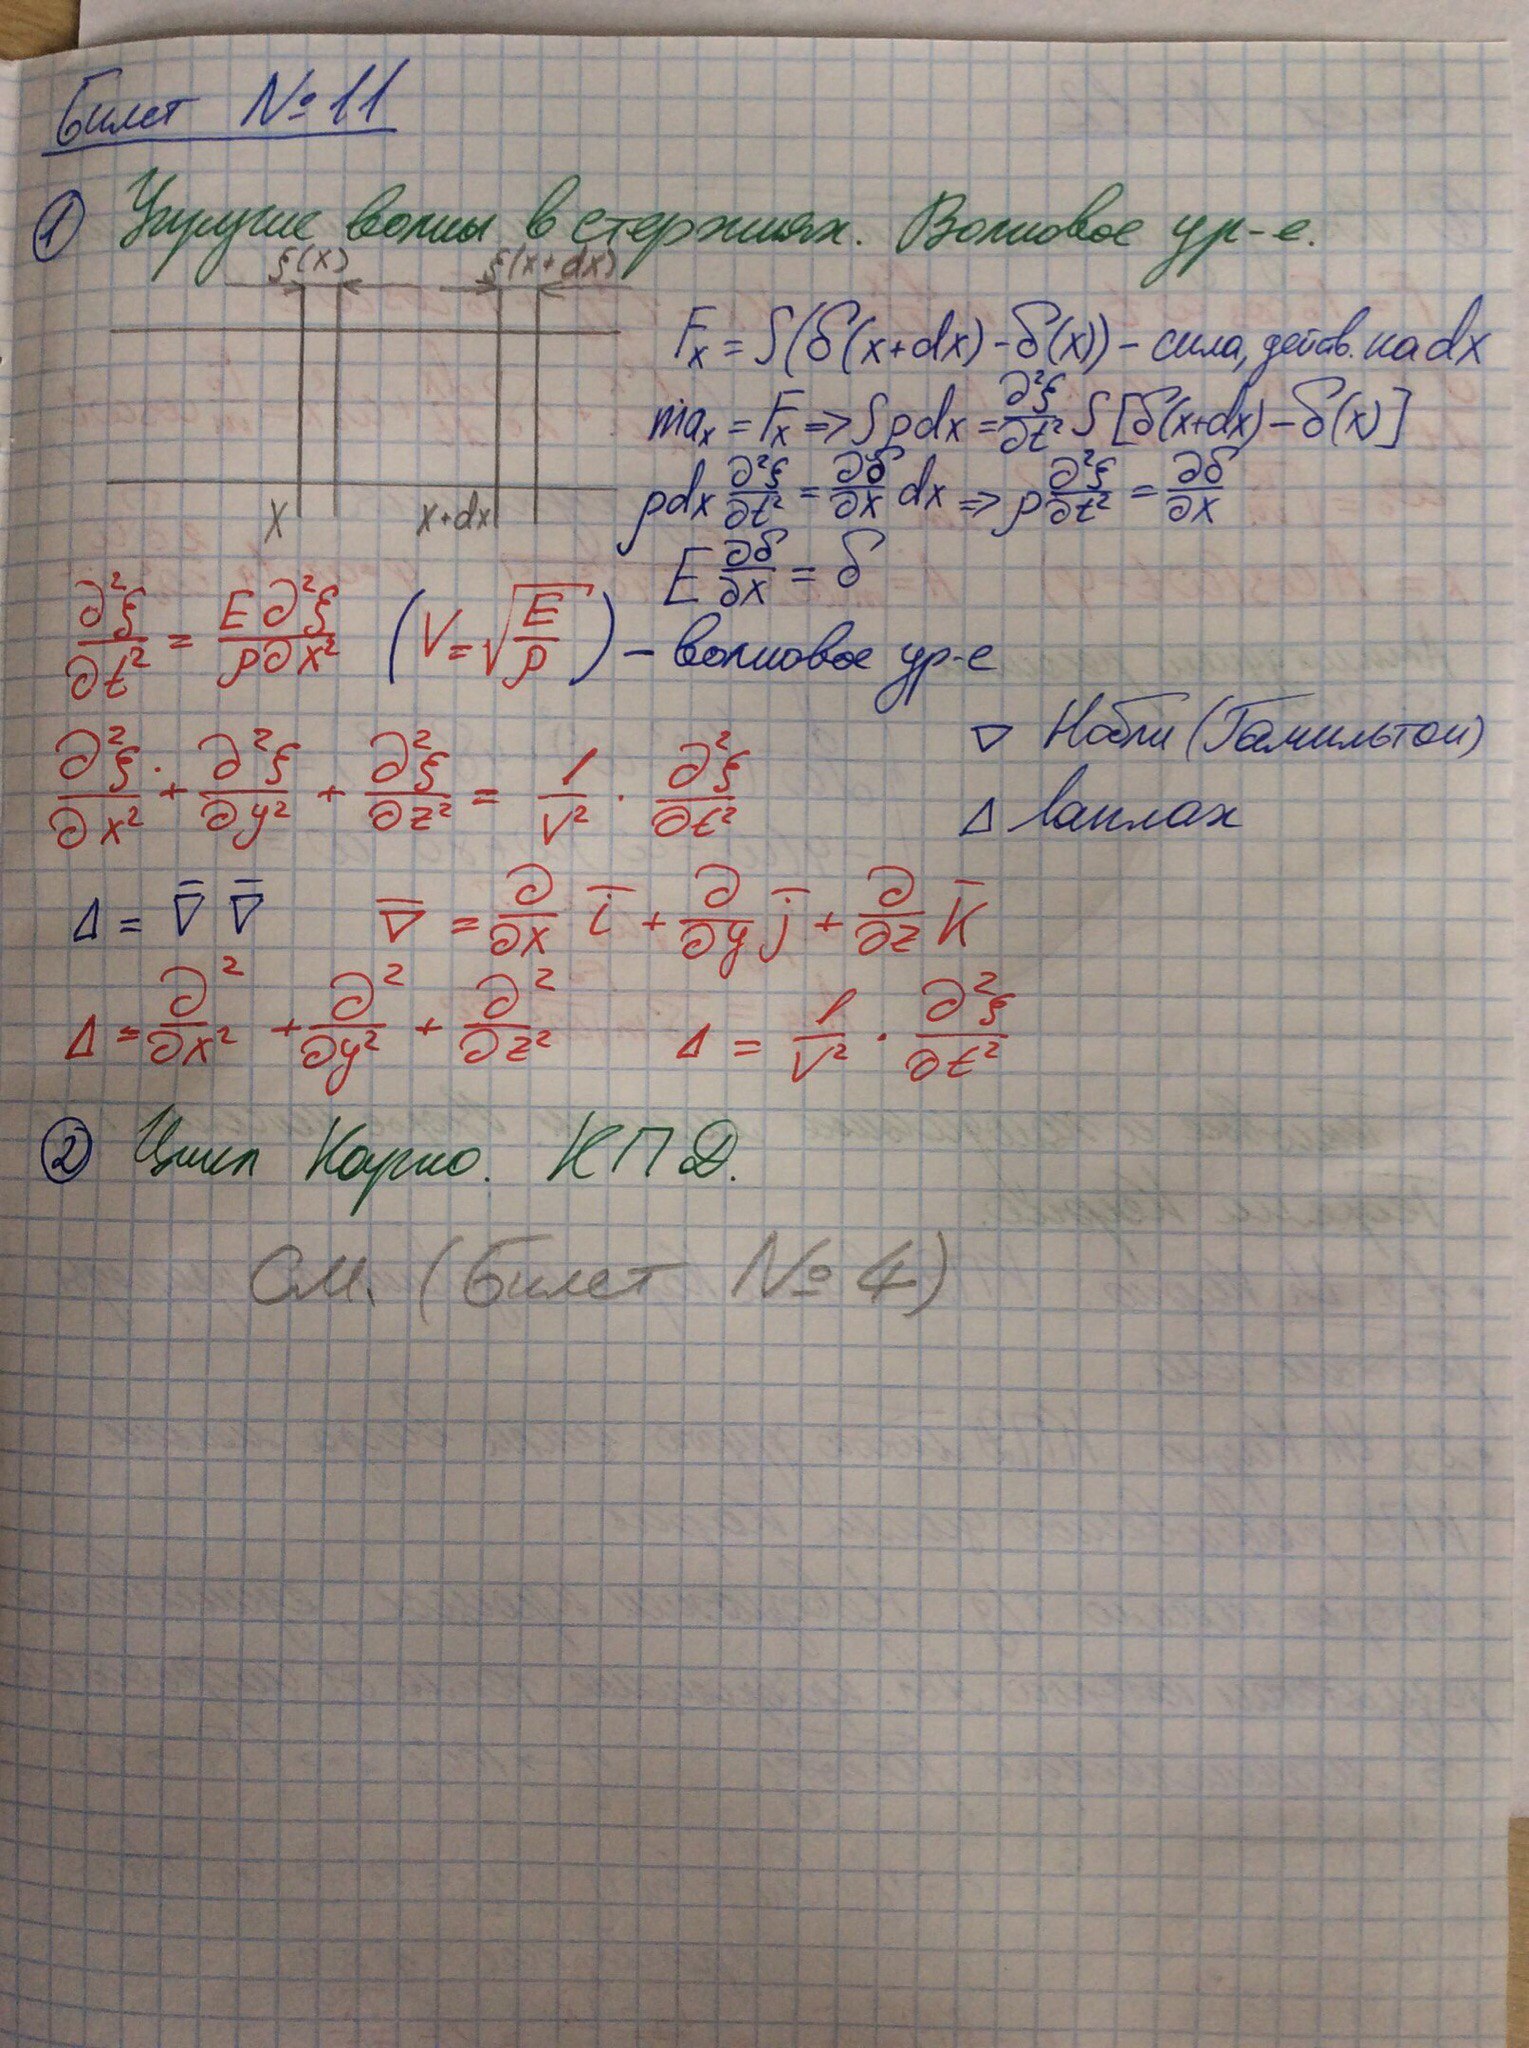 Билет №11
① Упругие волны в стержнях. Волновое ур-е.
ξ(x) ξ(x+dx)
x x+dx
Fₓ = S(δ(x+dx) - δ(x)) - сила, действ. на dx
maₓ = Fₓ => Sρdx = ∂²ξ/∂t² S[δ(x+dx) - δ(x)]
ρdx ∂²ξ/∂t² = ∂δ/∂x dx => ρ ∂²ξ/∂t² = ∂δ/∂x
E ∂δ/∂x = δ
∂²ξ/∂t² = E∂²ξ/ρ∂x² (V = √(E/ρ)) - волновое ур-е
∇ Набли (Гамильтон)
∂²ξ/∂x² + ∂²ξ/∂y² + ∂²ξ/∂z² = 1/V² · ∂²ξ/∂t²
Δ лаплах
Δ = ∇̅ ∇̅ ∇̅ = ∂/∂x i̅ + ∂/∂y j̅ + ∂/∂z k̅
Δ = ∂²/∂x² + ∂²/∂y² + ∂²/∂z² Δ = 1/V² · ∂²ξ/∂t²
② Цикл Карно. КПД.
См. (Билет №4)